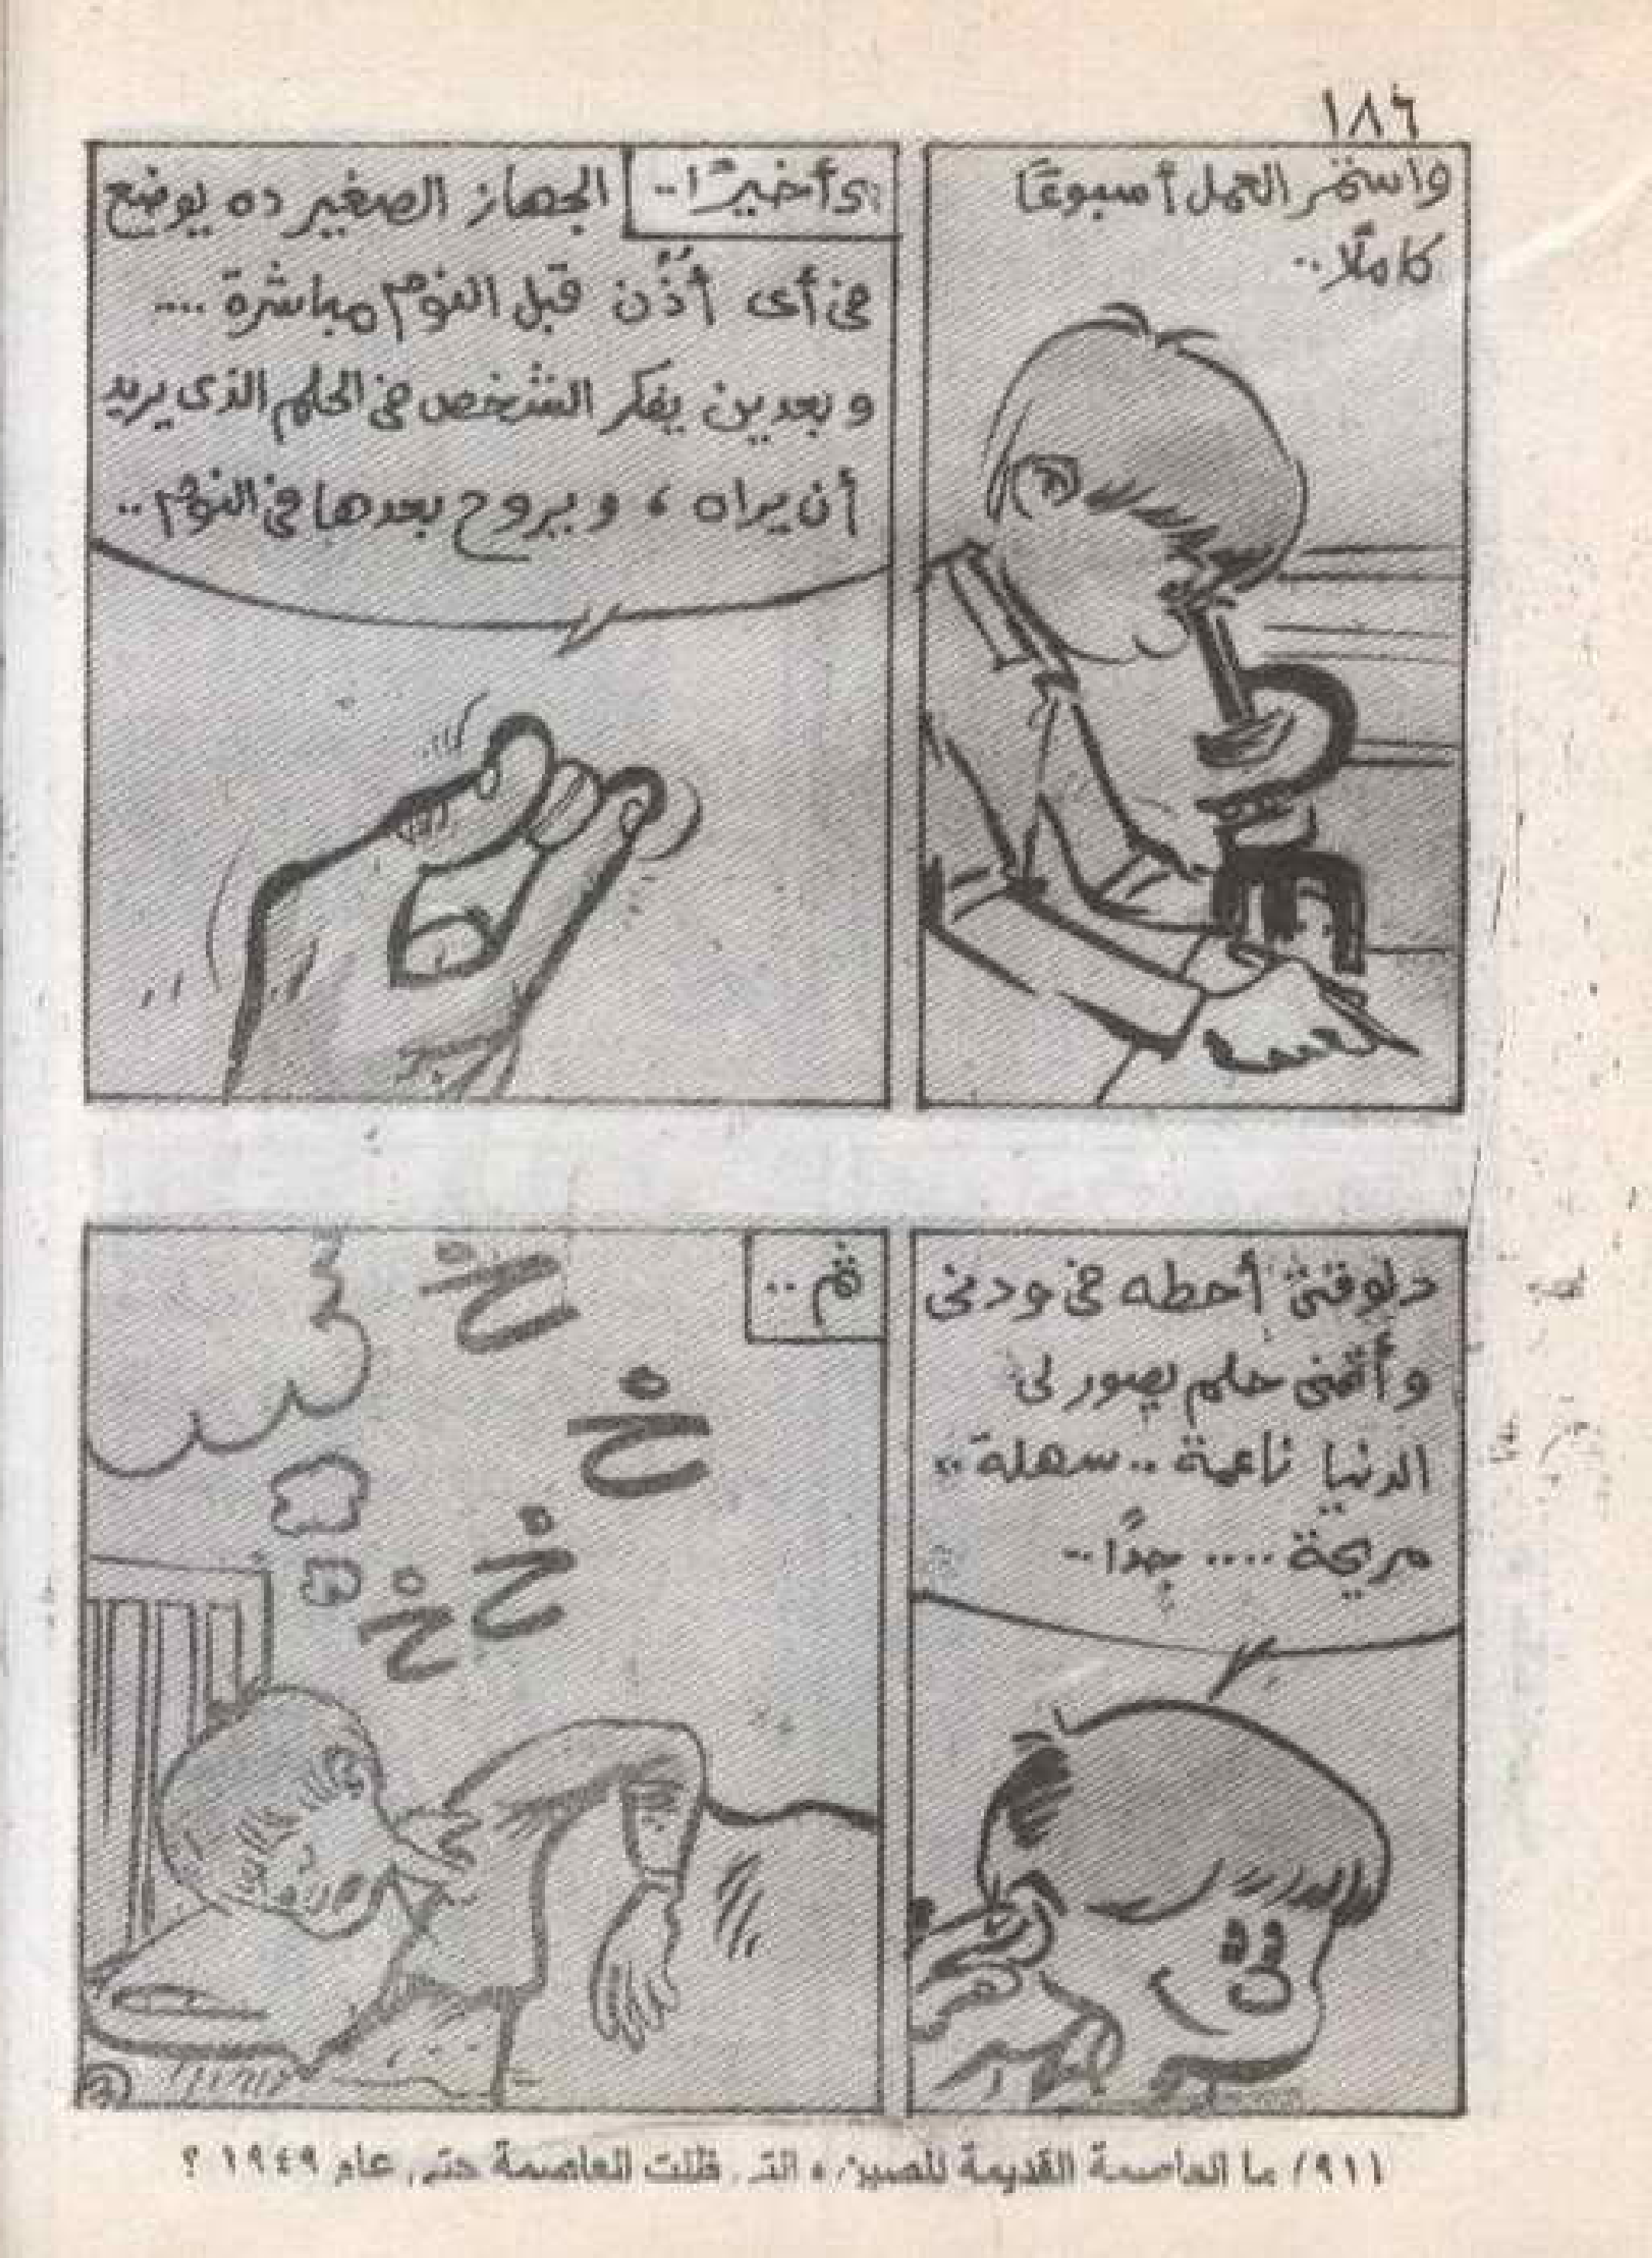 ١٨٦
واستمر العمل أسبوعًا
كاملًا..
وأخيرًا..
الجهاز الصغير ده يوضع
فى أى أُذُن قبل النوم مباشرة ....
وبعدين يفكر الشخص فى الحلم الذى يريد
أن يراه ، ويروح بعدها فى النوم ..
دلوقتى أحطه فى ودنى
وأتمنى حلم يصور لى
الدنيا ناعمة .. سهلة ..
مريحة .... جدًا ..
ثم ..
خ
خ
خ
خ
(٩١١) ما العاصمة القديمة للصين ، التى ظلت العاصمة حتى عام ١٩٤٩ ؟